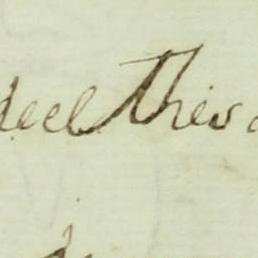 deel Theis